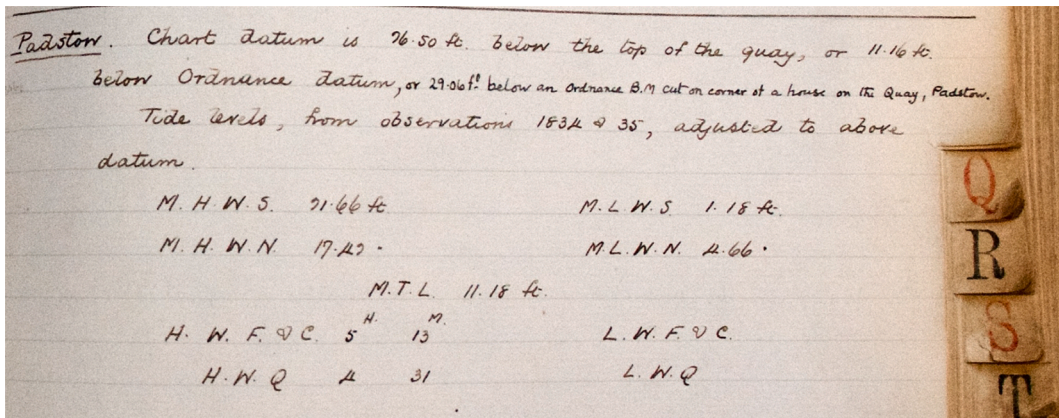 Padstow. Chart datum is 26.50 ft. below the top of the quay, or 11.16 ft.
below Ordnance datum, or 29.06 ft. below an Ordnance B.M cut on corner of a house on the Quay, Padstow.
Tide levels, from observations 1834 & 35, adjusted to above
datum.
M. H. W. S. 21.66 ft. M. L. W. S. 1.18 ft.
M. H. W. N. 17.42 " M. L. W. N. 4.66 "
M. T. L. 11.18 ft.
H. M.
H. W. F. & C. 5 13 L. W. F. & C.
H. W. Q 4 31 L. W. Q
Q
R
S
T